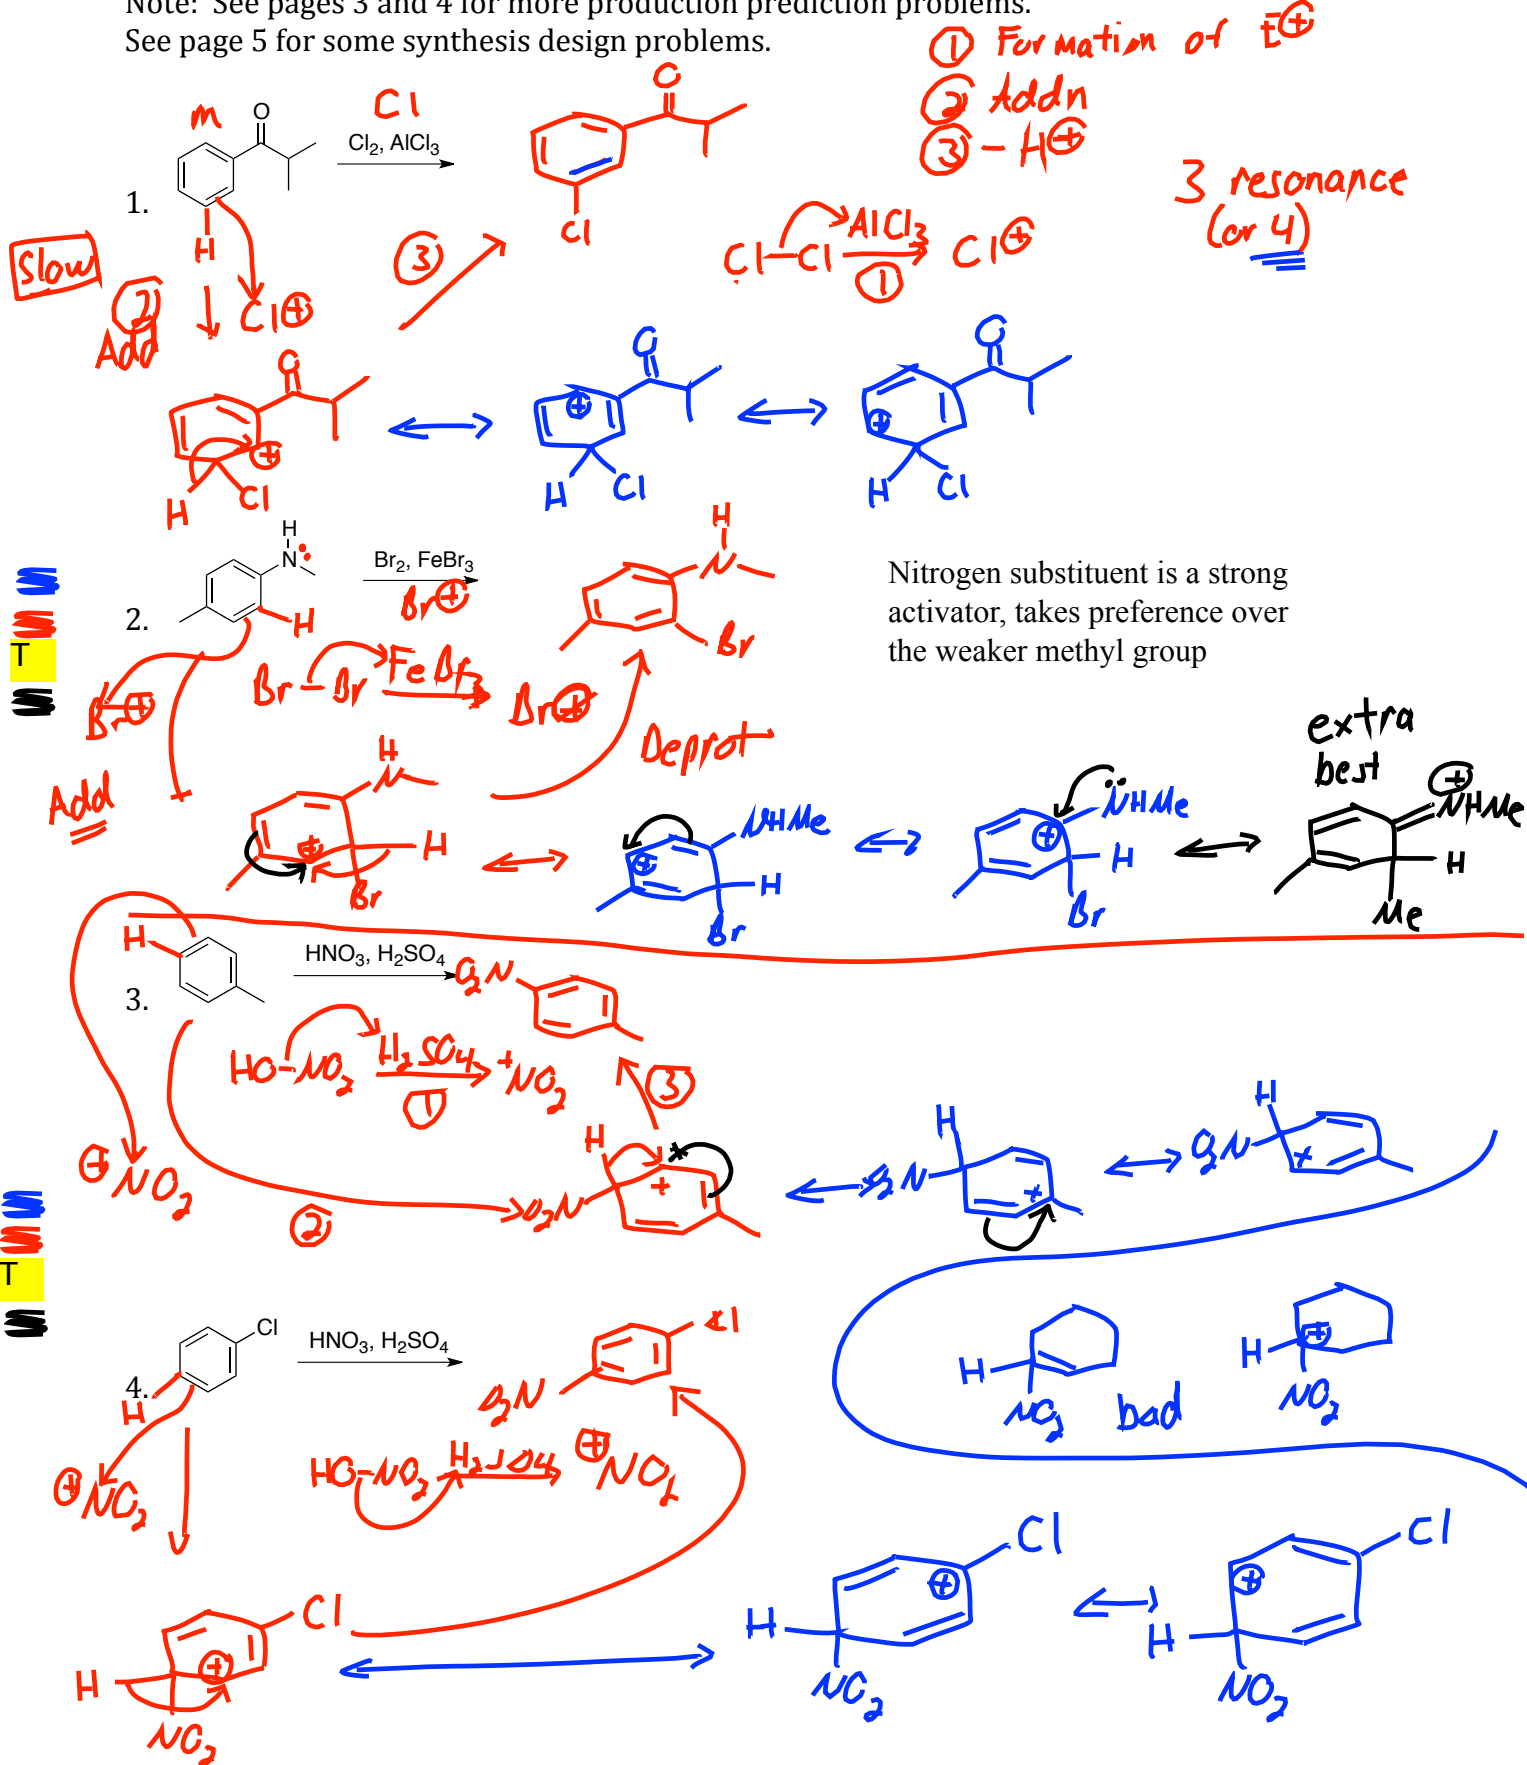 Note: See pages 3 and 4 for more production prediction problems.
See page 5 for some synthesis design problems.
① Formation of E⊕
② Addn
③ - H⊕
3 resonance
(or 4)
m
O
Cl
Cl2, AlCl3
O
1.
H
Cl
Slow
②
Add
Cl⊕
③
Cl-Cl AlCl3 Cl⊕
①
O
⊕
H
Cl
O
⊕
H
Cl
O
⊕
H
Cl
H
N
Br2, FeBr3
Br⊕
2.
H
H
N
Br
Nitrogen substituent is a strong
activator, takes preference over
the weaker methyl group
T
Br⊕
Br-Br FeBr3 Br⊕
Deprot
Add
H
N
⊕
H
Br
NHMe
⊕
H
Br
NHMe
⊕
H
Br
extra
best
⊕
NHMe
H
Me
H
3.
HNO3, H2SO4
O2N
HO-NO2 H2SO4 +NO2
①
③
⊕NO2
②
H
O2N
+
H
O2N
+
H
O2N
+
T
H
NO2
bad
H
⊕
NO2
Cl
4.
H
HNO3, H2SO4
O2N
Cl
⊕NO2
HO-NO2 H2SO4 ⊕NO2
Cl
⊕
H
NO2
Cl
⊕
H
NO2
Cl
⊕
H
NO2